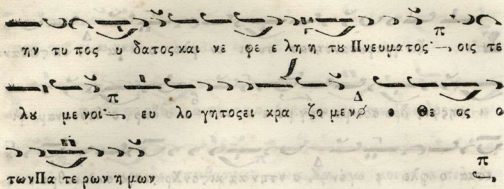 ην τυ πος υ δατος και νε φε ε λη η τȣ Πνευματος οις τε
λȣ με νοι ευ λο γητος ει κρα ζο μεν ο Θε ος ο
των Πα τε ρων η μων